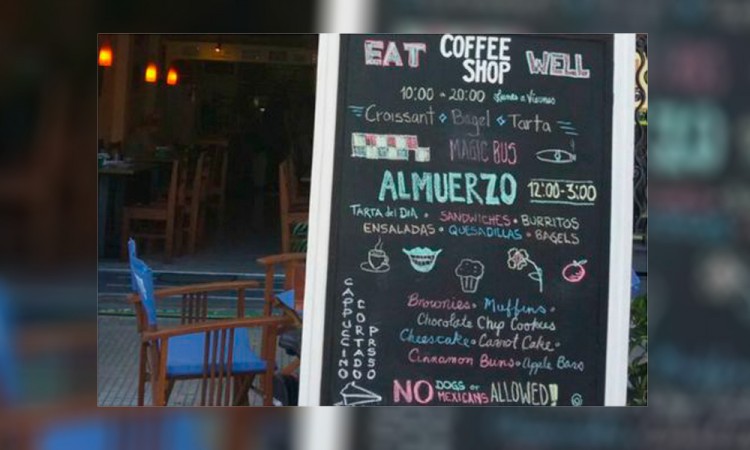 EAT COFFEE SHOP WELL
10:00 - 20:00 Lunes a Viernes
Croissant Bagel Tarta
MAGIC BUS
ALMUERZO 12:00-3:00
TARTA del DIA SANDWICHES BURRITOS
ENSALADAS QUESADILLAS BAGELS
Brownies Muffins
Chocolate Chip Cookies
Cheescake Carrot Cake
Cinnamon Buns Apple Bars
CAPPUCCINO
CORTADO
PRSSO
NO DOGS or MEXICANS ALLOWED!